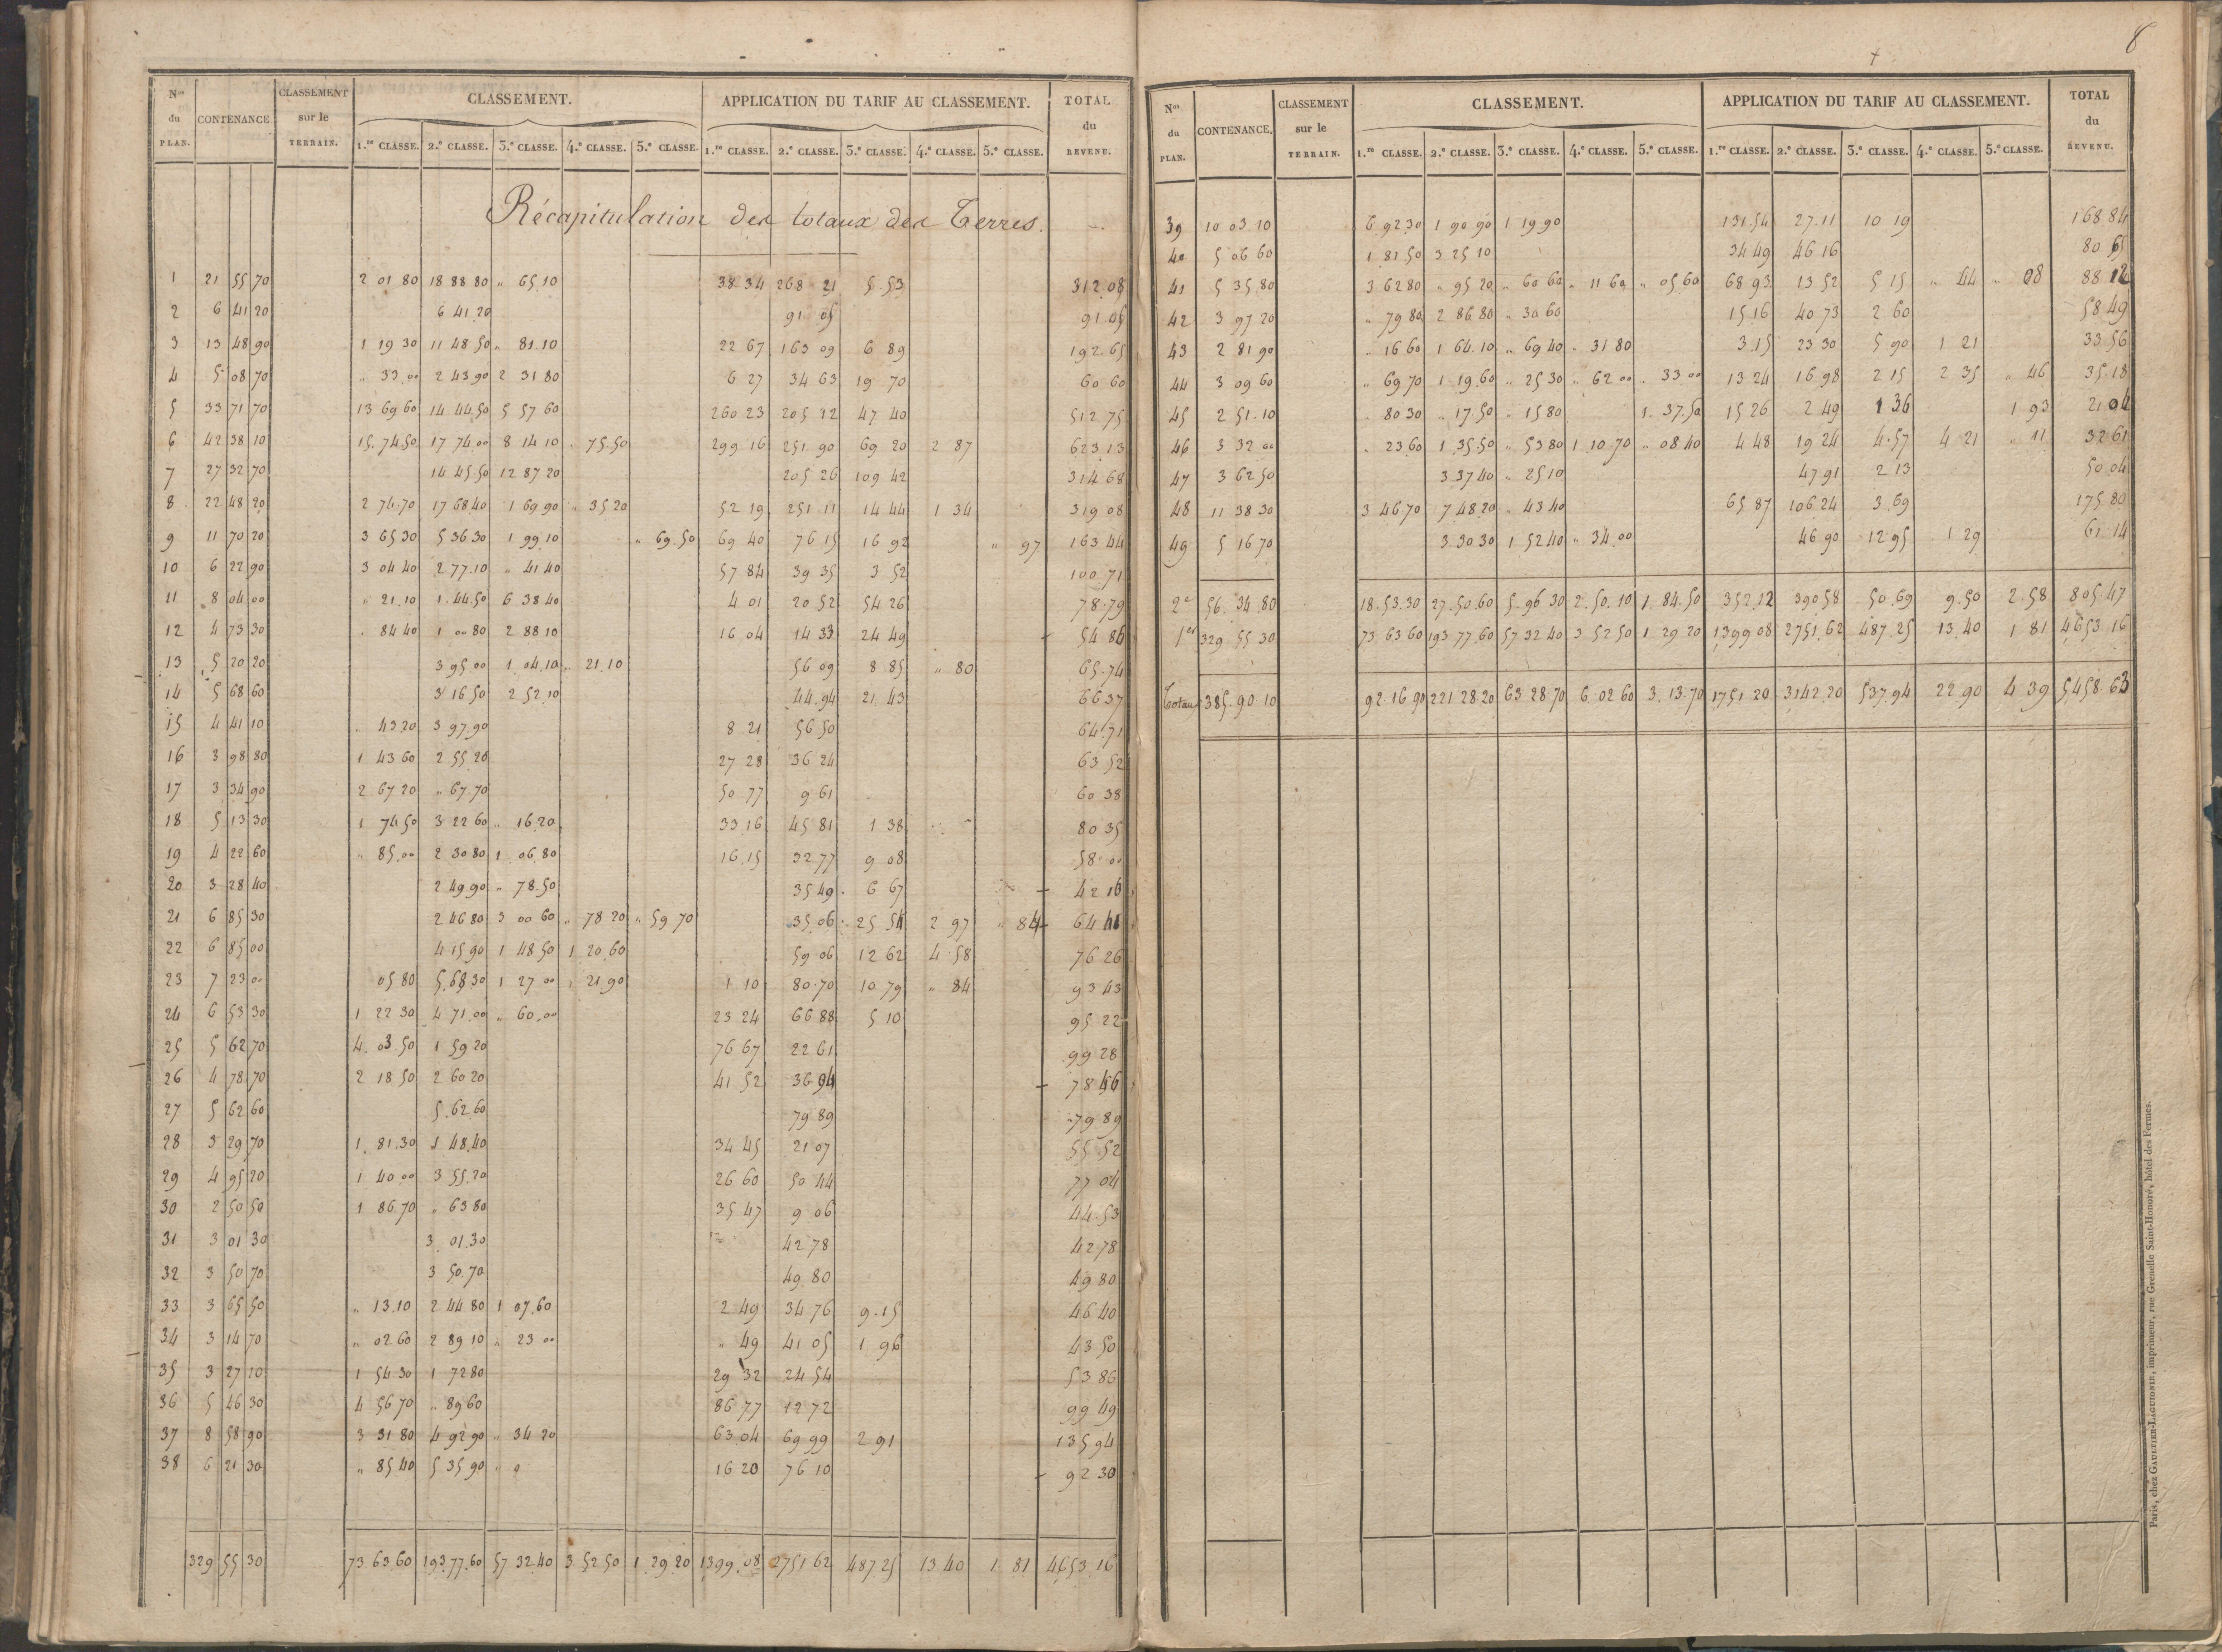 Nos du PLAN. CONTENANCE. CLASSEMENT sur le TERRAIN. CLASSEMENT. APPLICATION DU TARIF AU CLASSEMENT. TOTAL du REVENU.
1.re CLASSE. 2.e CLASSE. 3.e CLASSE. 4.e CLASSE. 5.e CLASSE. 1.re CLASSE. 2.e CLASSE. 3.e CLASSE. 4.e CLASSE. 5.e CLASSE.
Récapitulation des totaux des Terres.
1 21 55 70 2 01 80 18 88 80 " 65.10 38 34 268 21 5.53 312.08
2 6 41 20 6 41.20 91 05 91.05
3 13 48 90 1 19 30 11 48.50 " 81.10 22 67 163 09 6 89 192 65
4 5 08 70 " 33.00 2 43.90 2 31 80 6 27 34 63 19 70 60 60
5 33 71 70 13 69 60 14 44.50 5 57 60 260 23 205 12 47 40 512 75
6 42 38 10 15.74.50 17 74.00 8 14 10 " 75.50 299 16 251 90 69 20 2 87 623.13
7 27 32 70 14 45.50 12 87 20 205 26 109 42 314 68
8 22 48 20 2 74.70 17 68 40 1 69 90 " 35 20 52 19 251 11 14 44 1 34 319 08
9 11 70 20 3 65 30 5 36 30 1 99.10 " 69.50 69 40 76 15 16 92 " 97 163 44
10 6 22 90 3 04 40 2 77.10 " 41 40 57 84 39 35 3 52 100 71
11 8 04 00 " 21.10 1.44.50 6 38 40 4 01 20 52 54 26 78.79
12 4 73 30 " 84 40 1 00 80 2 88 10 16 04 14 33 24 49 54 86
13 5 20 20 3 95 00 1 04.10 " 21.10 56 09 8 85 " 80 65.74
14 5 68 60 3 16 50 2 52.10 44.94 21 43 66 37
15 4 41 10 " 43.20 3 97.90 8 21 56 50 64.71
16 3 98 80 1 43 60 2 55 20 27 28 36 24 63 52
17 3 34 90 2 67 20 " 67.70 50 77 9 61 60 38
18 5 13 30 1 74.50 3 22 60 " 16.20 33 16 45 81 1 38 80 35
19 4 22 60 " 85.00 2 30 80 1 06.80 16.15 32 77 9 08 58 00
20 3 28 40 2 49.90 " 78.50 35 49 6 67 42 16
21 6 85 30 2 46 80 3 00 60 " 78 20 " 59 70 35.06 25 54 2 97 " 84 64 41
22 6 85 00 4 15 90 1 48 50 1 20.60 59 06 12 62 4 58 76 26
23 7 23 00 05 80 5.68.30 1 27 00 " 21 90 1 10 80.70 10 79 " 84 93 43
24 6 53 30 1 22 30 4 71.00 " 60.00 23 24 66 88 5 10 95 22
25 5 62 70 4.03.50 1 59 20 76 67 22 61 99 28
26 4 78 70 2 18 50 2 60 20 41 52 36 94 78 46
27 5 62 60 5.62 60 79 89 79 89
28 3 29 70 1.81.30 1 48.40 34 45 21 07 55 52
29 4 95 20 1 40 00 3 55.20 26 60 50 44 77 04
30 2 50 50 1 86.70 " 63 80 35 47 9 06 44.53
31 3 01 30 3 01.30 42 78 42 78
32 3 50 70 3 50.70 49.80 49 80
33 3 65 50 " 13.10 2 44 80 1 07.60 2 49 34 76 9.15 46 40
34 3 14 70 " 02 60 2 89 10 " 23 00 " 49 41 05 1 96 43 50
35 3 27 10 1 54.30 1 72 80 29 32 24 54 53 86
36 5 46 30 4 56 70 " 89 60 86 77 12 72 99 49
37 8 58 90 3 31 80 4 92 90 " 34 20 63 04 69 99 2 91 135 94
38 6 21 30 " 85 40 5 35 90 " 0 16 20 76 10 92 30
329 55 30 73 63.60 193.77.60 57 32.40 3.52.50 1.29.20 1399.08 2751 62 487.25 13.40 1.81 4653.16
8
Nos du PLAN. CONTENANCE. CLASSEMENT sur le TERRAIN. CLASSEMENT. APPLICATION DU TARIF AU CLASSEMENT. TOTAL du REVENU.
1.re CLASSE. 2.e CLASSE. 3.e CLASSE. 4.e CLASSE. 5.e CLASSE. 1.re CLASSE. 2.e CLASSE. 3.e CLASSE. 4.e CLASSE. 5.e CLASSE.
39 10 03 10 6 92 30 1 90 90 1 19.90 131.54 27.11 10 19 168 84
40 5 06 60 1.81 50 3 25 10 34 49 46 16 80 65
41 5 35.80 3 62 80 " 95 20 " 60 60 " 11 60 " 05 60 68 93 13 52 5 15 " 44 " 08 88 12
42 3 97 20 " 79 80 2 86.80 " 30 60 15.16 40 73 2 60 58 49
43 2 81 90 " 16 60 1 64.10 " 69 40 " 31 80 3.15 23 30 5 90 1 21 33 56
44 3 09 60 " 69.70 1 19.60 " 25 30 " 62 00 " 33 00 13 24 16.98 2 15 2 35 " 46 35.18
45 2 51.10 80 30 " 17.50 " 15 80 1.37.50 15 26 2 49 1 36 1 93 21 04
46 3 32 00 " 23 60 1 35.50 " 53 80 1 10.70 " 08 40 4 48 19 24 4.57 4 21 " 11 32 61
47 3 62 50 3 37 40 " 25 10 47.91 2 13 50.04
48 11 38 30 3 46.70 7 48.20 " 43 40 65 87 106 24 3.69 175 80
49 5 16 70 3.30.30 1 52 40 " 34.00 46 90 12 95 1 29 61 14
2e 56.34.80 18.53.30 27.50.60 5.96 30 2.50.10 1.84.50 352.12 390 58 50.69 9.50 2.58 805 47
1er 329 55 30 73 63 60 193 77.60 57 32.40 3 52 50 1 29 20 1399 08 2751.62 487.25 13.40 1 81 4653.16
Totaux 385.90 10 92.16 90 221 28 20 63 28 70 6 02 60 3.13.70 1751.20 3142.20 537.94 22.90 4 39 5458 63
Paris, chez GAULTIER-LAGUIONIE, imprimeur, rue Grenelle Saint-Honoré, hôtel des Fermes.